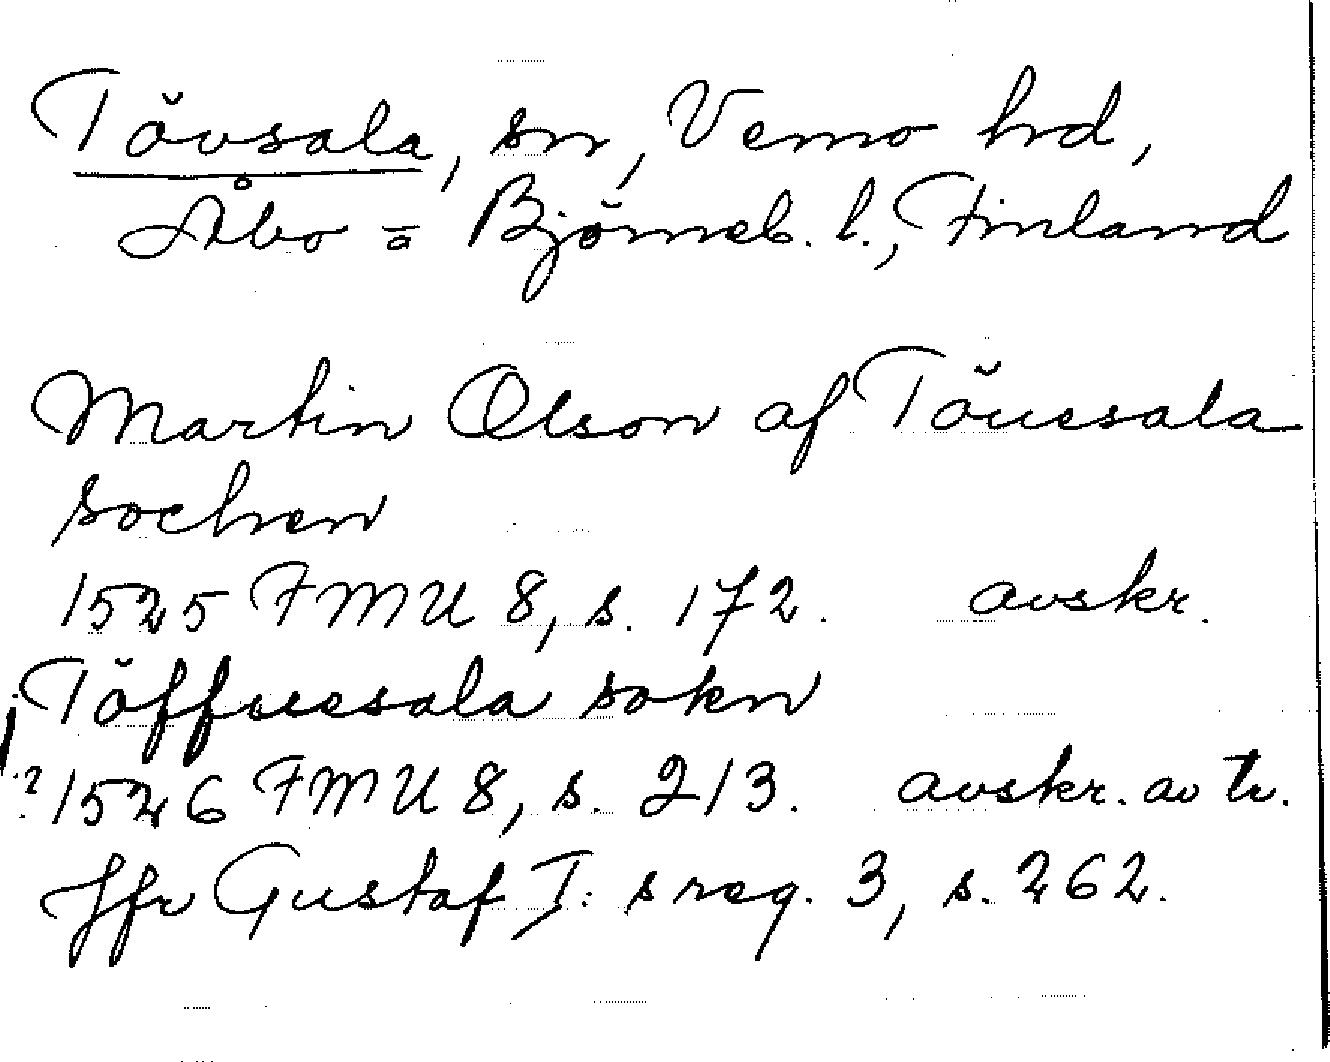 Tövsala, sn, Vemo hd,
Åbo = Björneb. l., Finland
Martin Olson af Töuesala
sochen
1525 FMU 8, s. 172. avskr.
Töffuesala sokn
? 1526 FMU 8, s. 213. avskr. av tr.
Jfr Gustaf I: s reg. 3, s. 262.